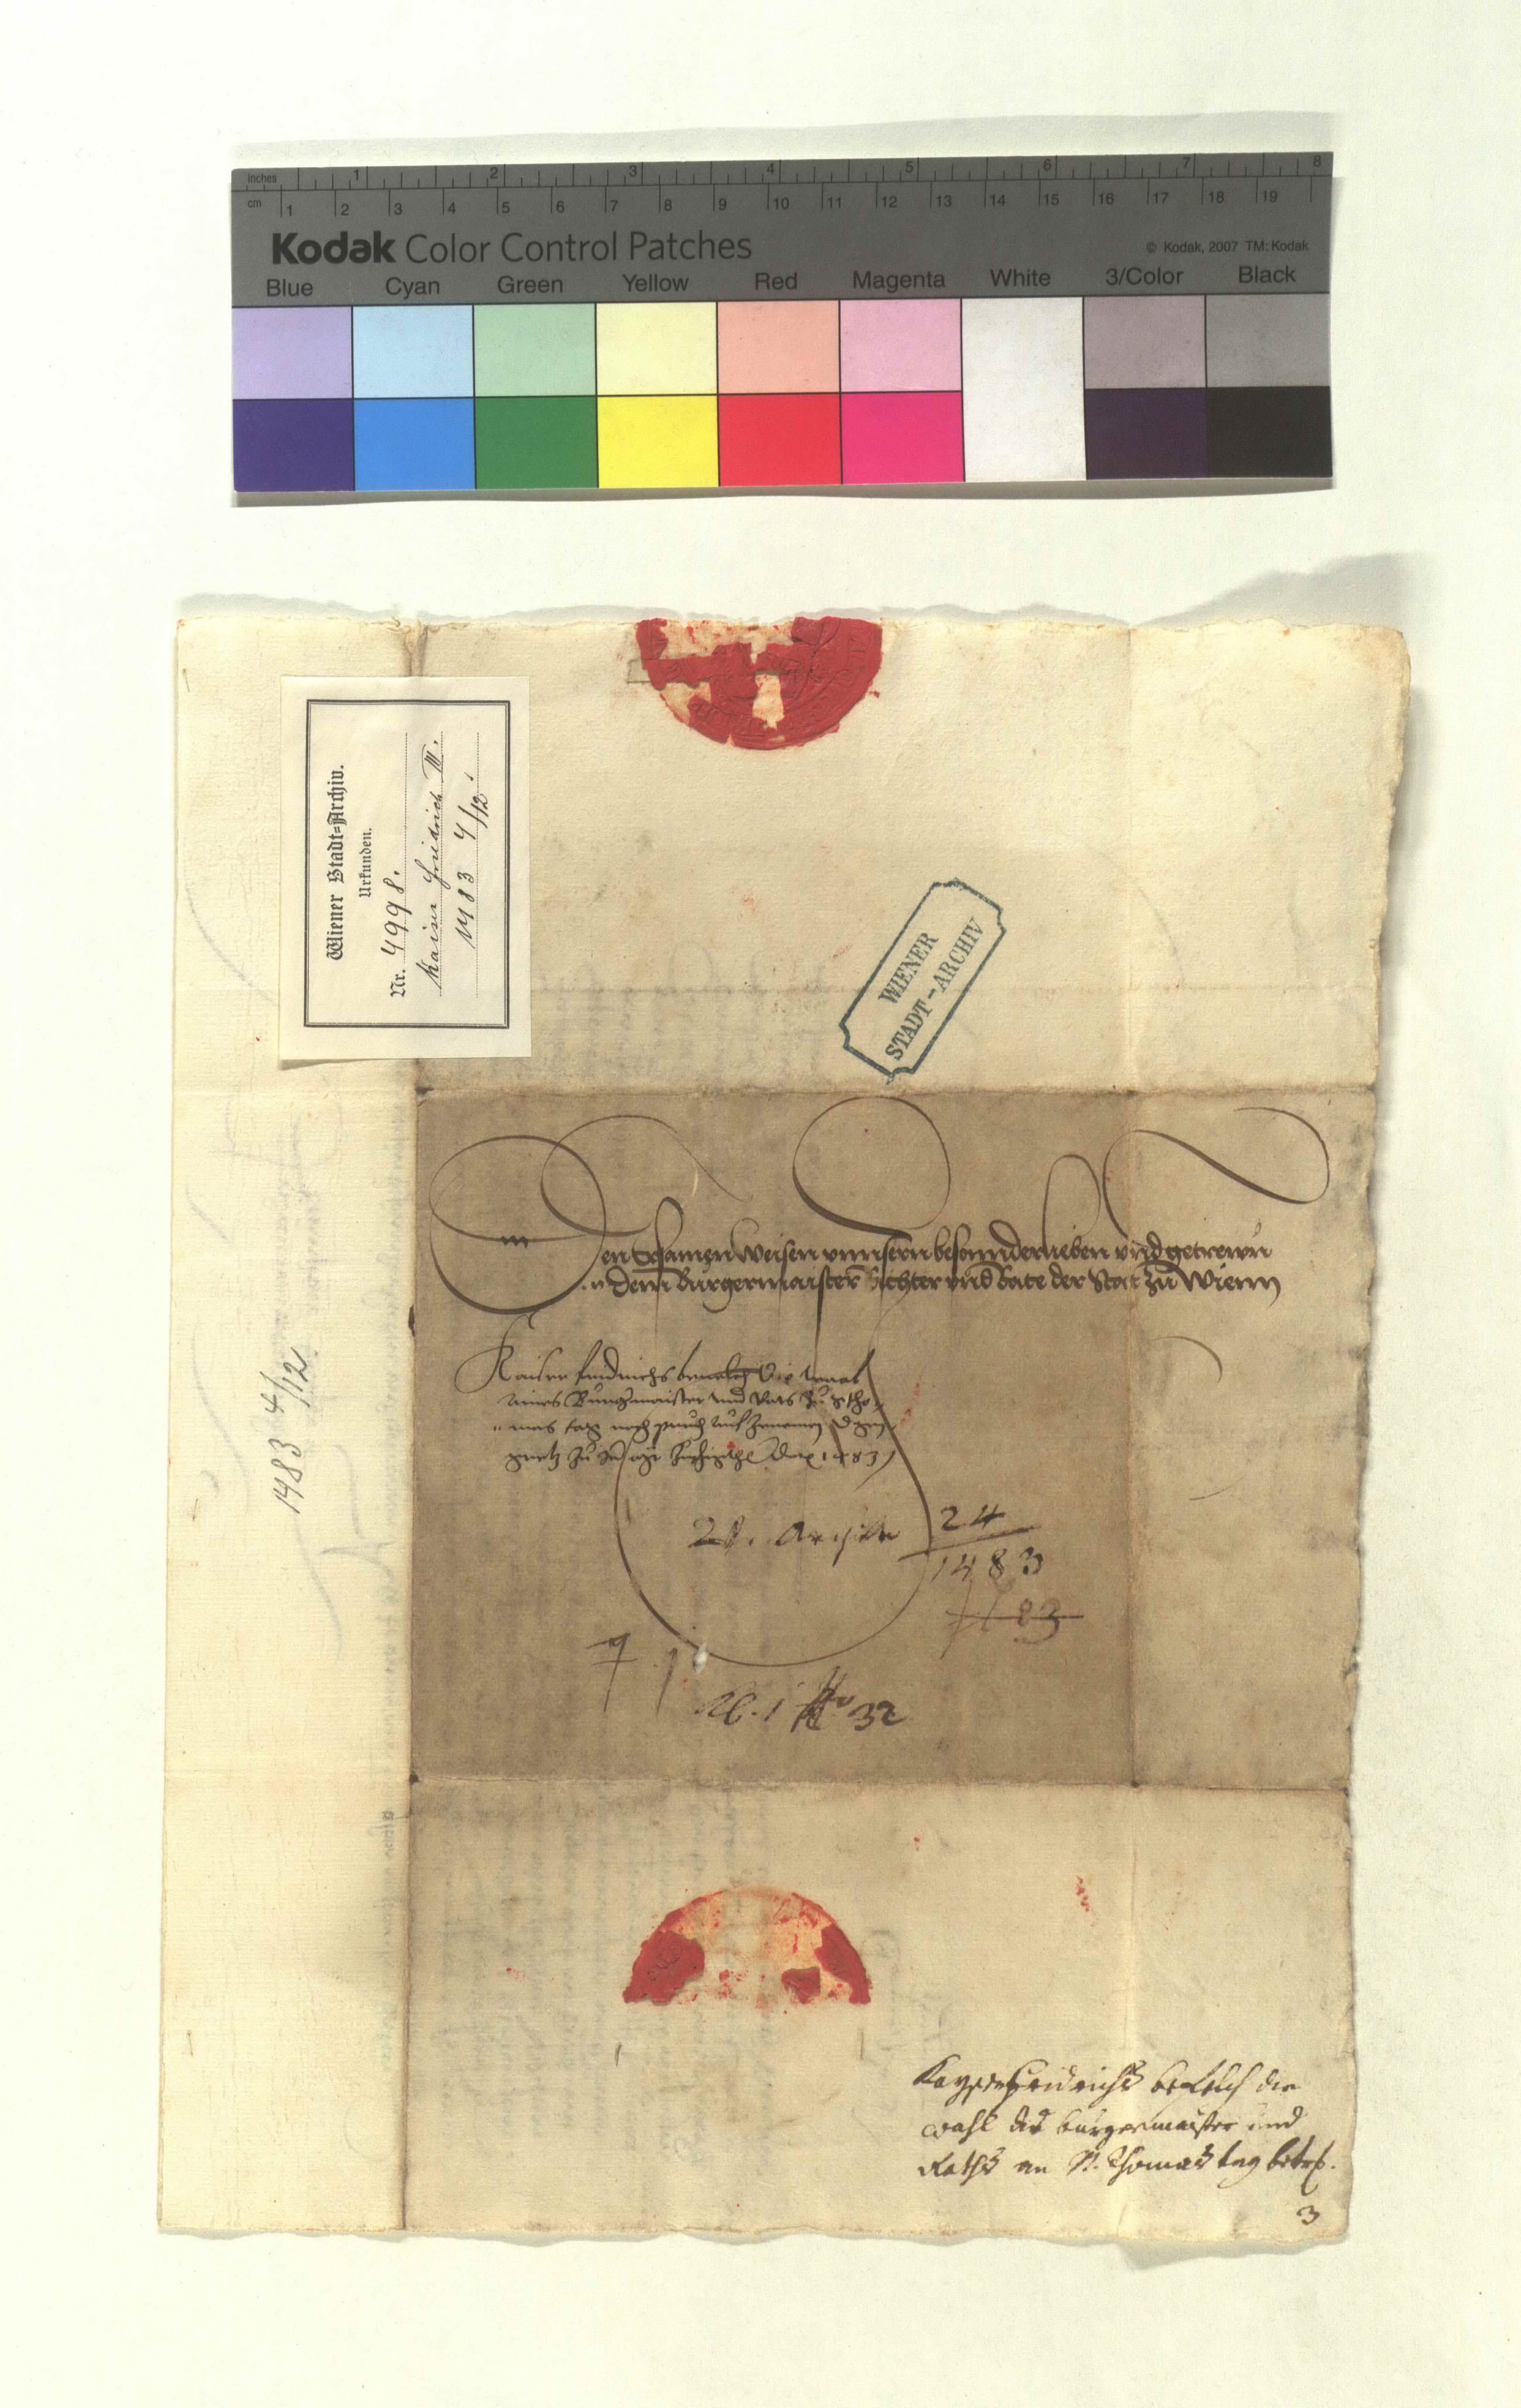 inches 1 2 3 4 5 6 7 8
cm 1 2 3 4 5 6 7 8 9 10 11 12 13 14 15 16 17 18 19
Kodak Color Control Patches
© Kodak, 2007 TM: Kodak
Blue Cyan Green Yellow Red Magenta White 3/Color Black
Wiener Stadt-Archiv.
Urkunden.
Nr. 4998.
Kaiser Friedrich III.
1483 4/12.
WIENER
STADT-ARCHIV
Den Ersamen weisen unnsern besonnderlieben und getrewn
dem Burgermaister Richter und Rate der Stat zu Wienn
Kaiser Fridrichs
aines Burgermaister und Rats zu s tho
mas tag
1483
1483 4/12.
24
1483
32
Kayser Fridrichs befelch die
wahl des burgermaister und
Raths an St. Thomas tag betrf.
3